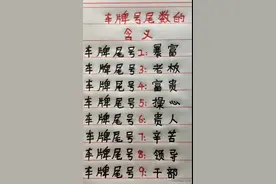 车牌号尾数的
含义
车牌尾号2：暴富
车牌尾号3：老板
车牌尾号4：富贵
车牌尾号5：操心
车牌尾号6：贵人
车牌尾号7：辛苦
车牌尾号8：领导
车牌尾号9：干部